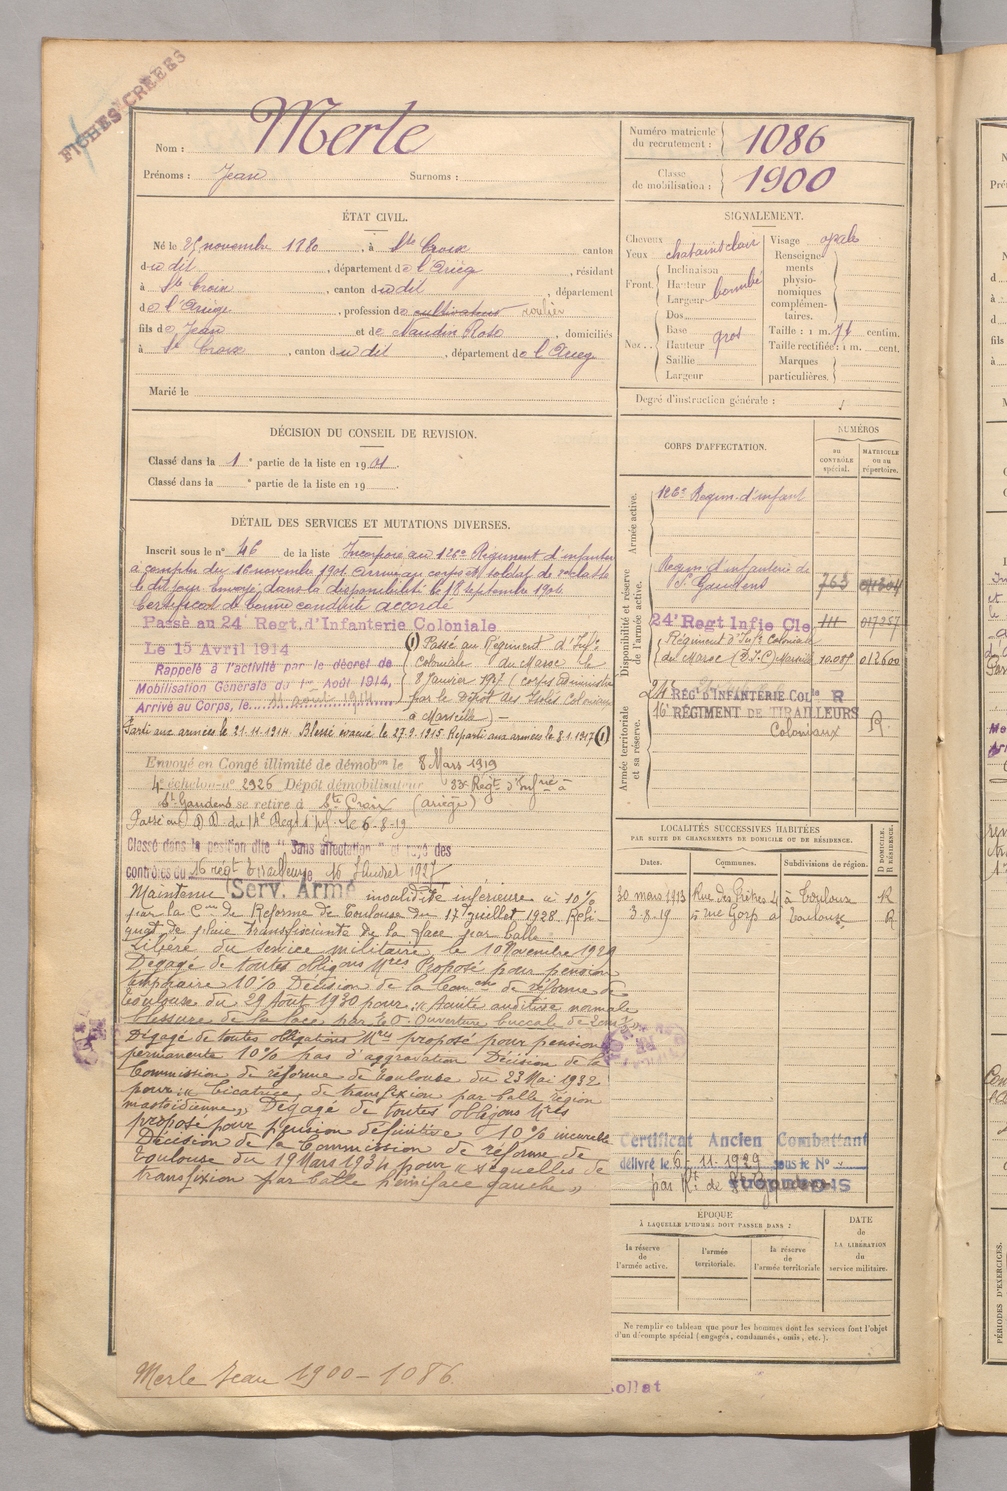 FICHES CRÉÉES
Nom : Merle
Prénoms : Jean Surnoms :
Numéro matricule du recrutement : 1086
Classe de mobilisation : 1900
ÉTAT CIVIL.
Né le 25 novembre 1880, à Ste Croix canton
du dit, département de l'Arièg, résidant
à Ste Croix, canton du dit, département
de l'Ariège, profession de cultivateur roulier
fils de Jean et de Naudin Rose, domiciliés
à Ste Croix, canton du dit, département de l'Arieg
Marié le
SIGNALEMENT.
Cheveux chatains clair
Yeux
Front Inclinaison
Hauteur bombé
Largeur
Nez Dos
Base
Hauteur gros
Saillie
Largeur
Visage ovale
Renseignements physionomiques complémentaires.
Taille : 1 m. 71 centim.
Taille rectifiée : 1 m. cent.
Marques particulières.
Degré d'instruction générale :
DÉCISION DU CONSEIL DE REVISION.
Classé dans la 1e partie de la liste en 1901.
Classé dans la e partie de la liste en 19
DÉTAIL DES SERVICES ET MUTATIONS DIVERSES.
Inscrit sous le n° 46 de la liste Incorporé au 126e Régiment d'infanterie
à compter du 16 novembre 1901 arrivé au corps et soldat de 2e classe
le dit jour. Envoyé dans la disponibilité le 18 septembre 1904
Certificat de bonne conduite accordé
Passé au 24e Regt. d'Infanterie Coloniale
Le 15 Avril 1914
Rappelé à l'activité par le décret de
Mobilisation Générale du 1er Août 1914,
Arrivé au Corps, le 11 août 1914
(1) Passé au Régiment d'Infie
coloniale du Maroc le
8 Janvier 1917 (corps administré
par le Dépôt des Isolés Coloniaux
à Marseille) —
Parti aux armées le 21.11.1914. Blessé évacué le 27.9.1915 Reparti aux armées le 8.1.1917 (1)
Envoyé en Congé illimité de démobon le 8 Mars 1919
4e échelon n° 2926 Dépôt démobilisateur 33e Régt d'Infrie à
St Gaudens se retire à Ste Croix (ariège)
Passé au D.D. du 14e Regt Inf. le 6-8-19
Classé dans la position dite "Sans affectation" et rayé des
contrôles du 16 régt tirailleurs le 16 Janvier 1927
Maintenu Serv. Armé invalidité inférieure à 10%
par la Con de Réforme de Toulouse du 17 juillet 1928. Reli
quat de plaie transfixiante de la face par balle
Libéré du service militaire le 10 Novembre 1929
Dégagé de toutes obligons Mres Proposé pour pension
temporaire 10% Décision de la Comon de réforme de
Toulouse du 29 Août 1930 pour : « Acuité auditive normale
blessure de la face par E.O. Ouverture buccale de
Dégagé de toutes obligations Mres proposé pour pension
permanente 10% pas d'aggravation Décision de la
Commission de réforme de Toulouse du 23 Mai 1932
pour : « Cicatrice de transfixion par balle région
mastoïdienne » Dégagé de toutes obligons Mres
proposé pour pension définitive 10% incurable
Décision de la Commission de réforme de
Toulouse du 19 Mars 1934 pour « séquelles de
transfixion par balle hémiface gauche »
Merle Jean 1900 - 1086.
CORPS D'AFFECTATION.
NUMÉROS
AU CONTRÔLE spécial.
MATRICULE ou au répertoire.
Armée active.
126e Regim. d'infant
Disponibilité et réserve de l'armée active.
Regim d'infanterie de
St Gaudens 763
24e Regt Infie Cle 111
Régiment d'Infie Coloniale
du Maroc (D.I.C) Marseille 10.089 012600
Armée territoriale et sa réserve.
24e RÉGt D'INFANTERIE COLle R
16e RÉGIMENT DE TIRAILLEURS
Coloniaux R.
LOCALITÉS SUCCESSIVES HABITÉES
PAR SUITE DE CHANGEMENTS DE DOMICILE OU DE RÉSIDENCE.
Dates. Communes. Subdivisions de région. D DOMICILE. R RÉSIDENCE.
30 mars 1913 Rue des Prêtres 4 à Toulouse R
3-8-19 5 rue Gorp à Toulouse R
Certificat Ancien Combattant
délivré le 6-11-1929 sous le N°
ÉPOQUE
À LAQUELLE L'HOMME DOIT PASSER DANS :
la réserve de l'armée active.
l'armée territoriale.
la réserve de l'armée territoriale
DATE de LA LIBÉRATION du service militaire.
Ne remplir ce tableau que pour les hommes dont les services font l'objet
d'un décompte spécial (engagés, condamnés, omis, etc.).
PÉRIODES D'EXERCICES.